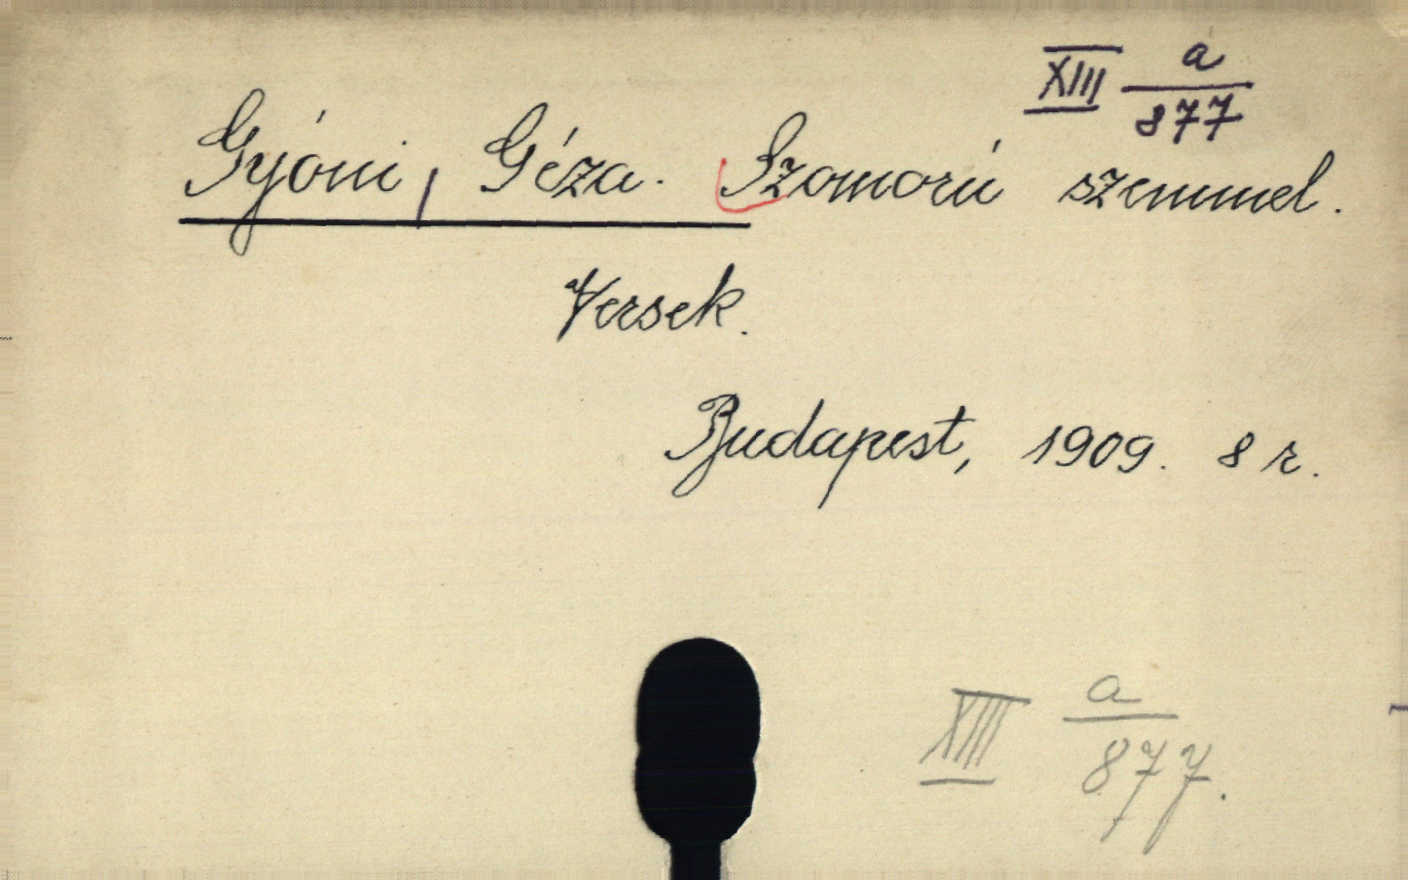 XIII a/877
Gyóni, Géza. Szomorú szemmel.
Versek.
Budapest, 1909. 8 r.
XIII a/877.